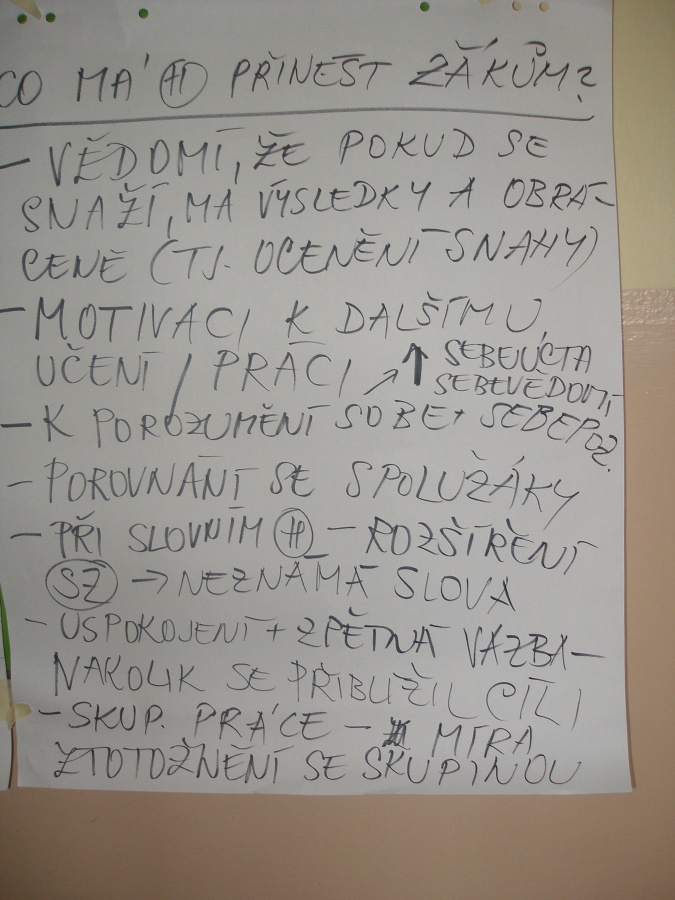 CO MÁ (H) PŘINÉST ŽÁKŮM?
– VĚDOMÍ, ŽE POKUD SE
SNAŽÍ, MÁ VÝSLEDKY A OBRÁ-
CENĚ (TJ. OCENĚNÍ SNAHY)
– MOTIVACI K DALŠÍMU
UČENÍ / PRÁCI ↗ ↑ SEBEÚCTA
SEBEVĚDOMÍ
– K POROZUMĚNÍ SOBĚ + SEBEPOZ.
– POROVNÁNÍ SE SPOLUŽÁKY
– PŘI SLOVNÍM (H) – ROZŠÍŘENÍ
(SZ) → NEZNÁMÁ SLOVA
– USPOKOJENÍ + ZPĚTNÁ VAZBA –
NAKOLIK SE PŘIBLÍŽIL CÍLI
– SKUP. PRÁCE – MÍRA
ZTOTOŽNĚNÍ SE SKUPINOU